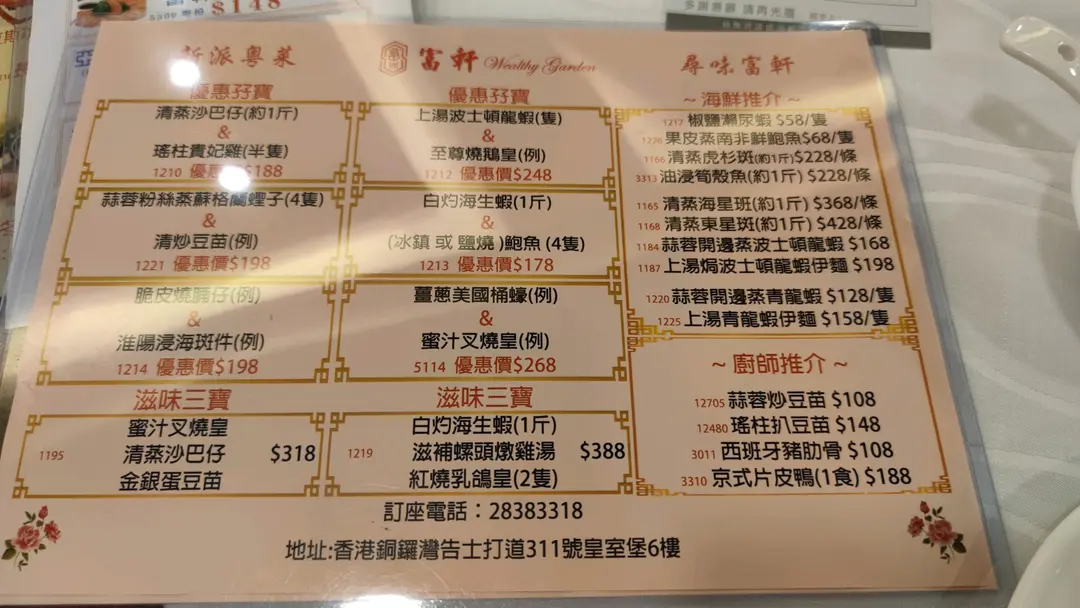 $148
多謝惠顧 請再光臨
新派粵菜
富軒 Wealthy Garden
尋味富軒
優惠孖寶
清蒸沙巴仔(約1斤)
&
瑤柱貴妃雞(半隻)
1210 優惠 $188
蒜蓉粉絲蒸蘇格蘭蟶子(4隻)
&
清炒豆苗(例)
1221 優惠價$198
脆皮燒腩仔(例)
&
淮陽浸海斑件(例)
1214 優惠價$198
滋味三寶
蜜汁叉燒皇
1195 清蒸沙巴仔 $318
金銀蛋豆苗
優惠孖寶
上湯波士頓龍蝦(隻)
&
至尊燒鵝皇(例)
1212 優惠價$248
白灼海生蝦(1斤)
&
(冰鎮 或 鹽燒 )鮑魚 (4隻)
1213 優惠價$178
薑蔥美國桶蠔(例)
&
蜜汁叉燒皇(例)
5114 優惠價$268
滋味三寶
白灼海生蝦(1斤)
1219 滋補螺頭燉雞湯 $388
紅燒乳鴿皇(2隻)
~ 海鮮推介 ~
1217 椒鹽瀨尿蝦 $58/隻
1226 果皮蒸南非鮮鮑魚$68/隻
1166 清蒸虎杉斑(約1斤)$228/條
3313 油浸筍殼魚(約1斤) $228/條
1165 清蒸海星斑(約1斤) $368/條
1168 清蒸東星斑(約1斤) $428/條
1184 蒜蓉開邊蒸波士頓龍蝦 $168
1187 上湯焗波士頓龍蝦伊麵 $198
1220 蒜蓉開邊蒸青龍蝦 $128/隻
1225 上湯青龍蝦伊麵 $158/隻
~ 廚師推介 ~
12705 蒜蓉炒豆苗 $108
12480 瑤柱扒豆苗 $148
3011 西班牙豬肋骨 $108
3310 京式片皮鴨(1食) $188
訂座電話：28383318
地址:香港銅鑼灣告士打道311號皇室堡6樓